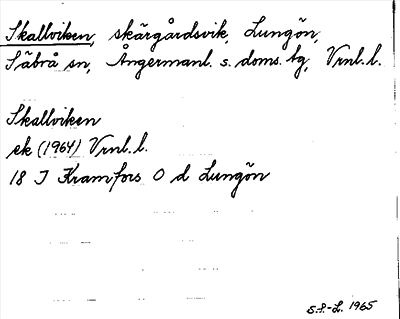 Skallviken, skärgårdsvik, Lungön,
Säbrå sn, Ångermanl. s. doms. tg, Vrnl. l.
Skallviken
ek (1964) Vrnl. l.
18 J Kramfors O d Lungön
S.P.-L. 1965